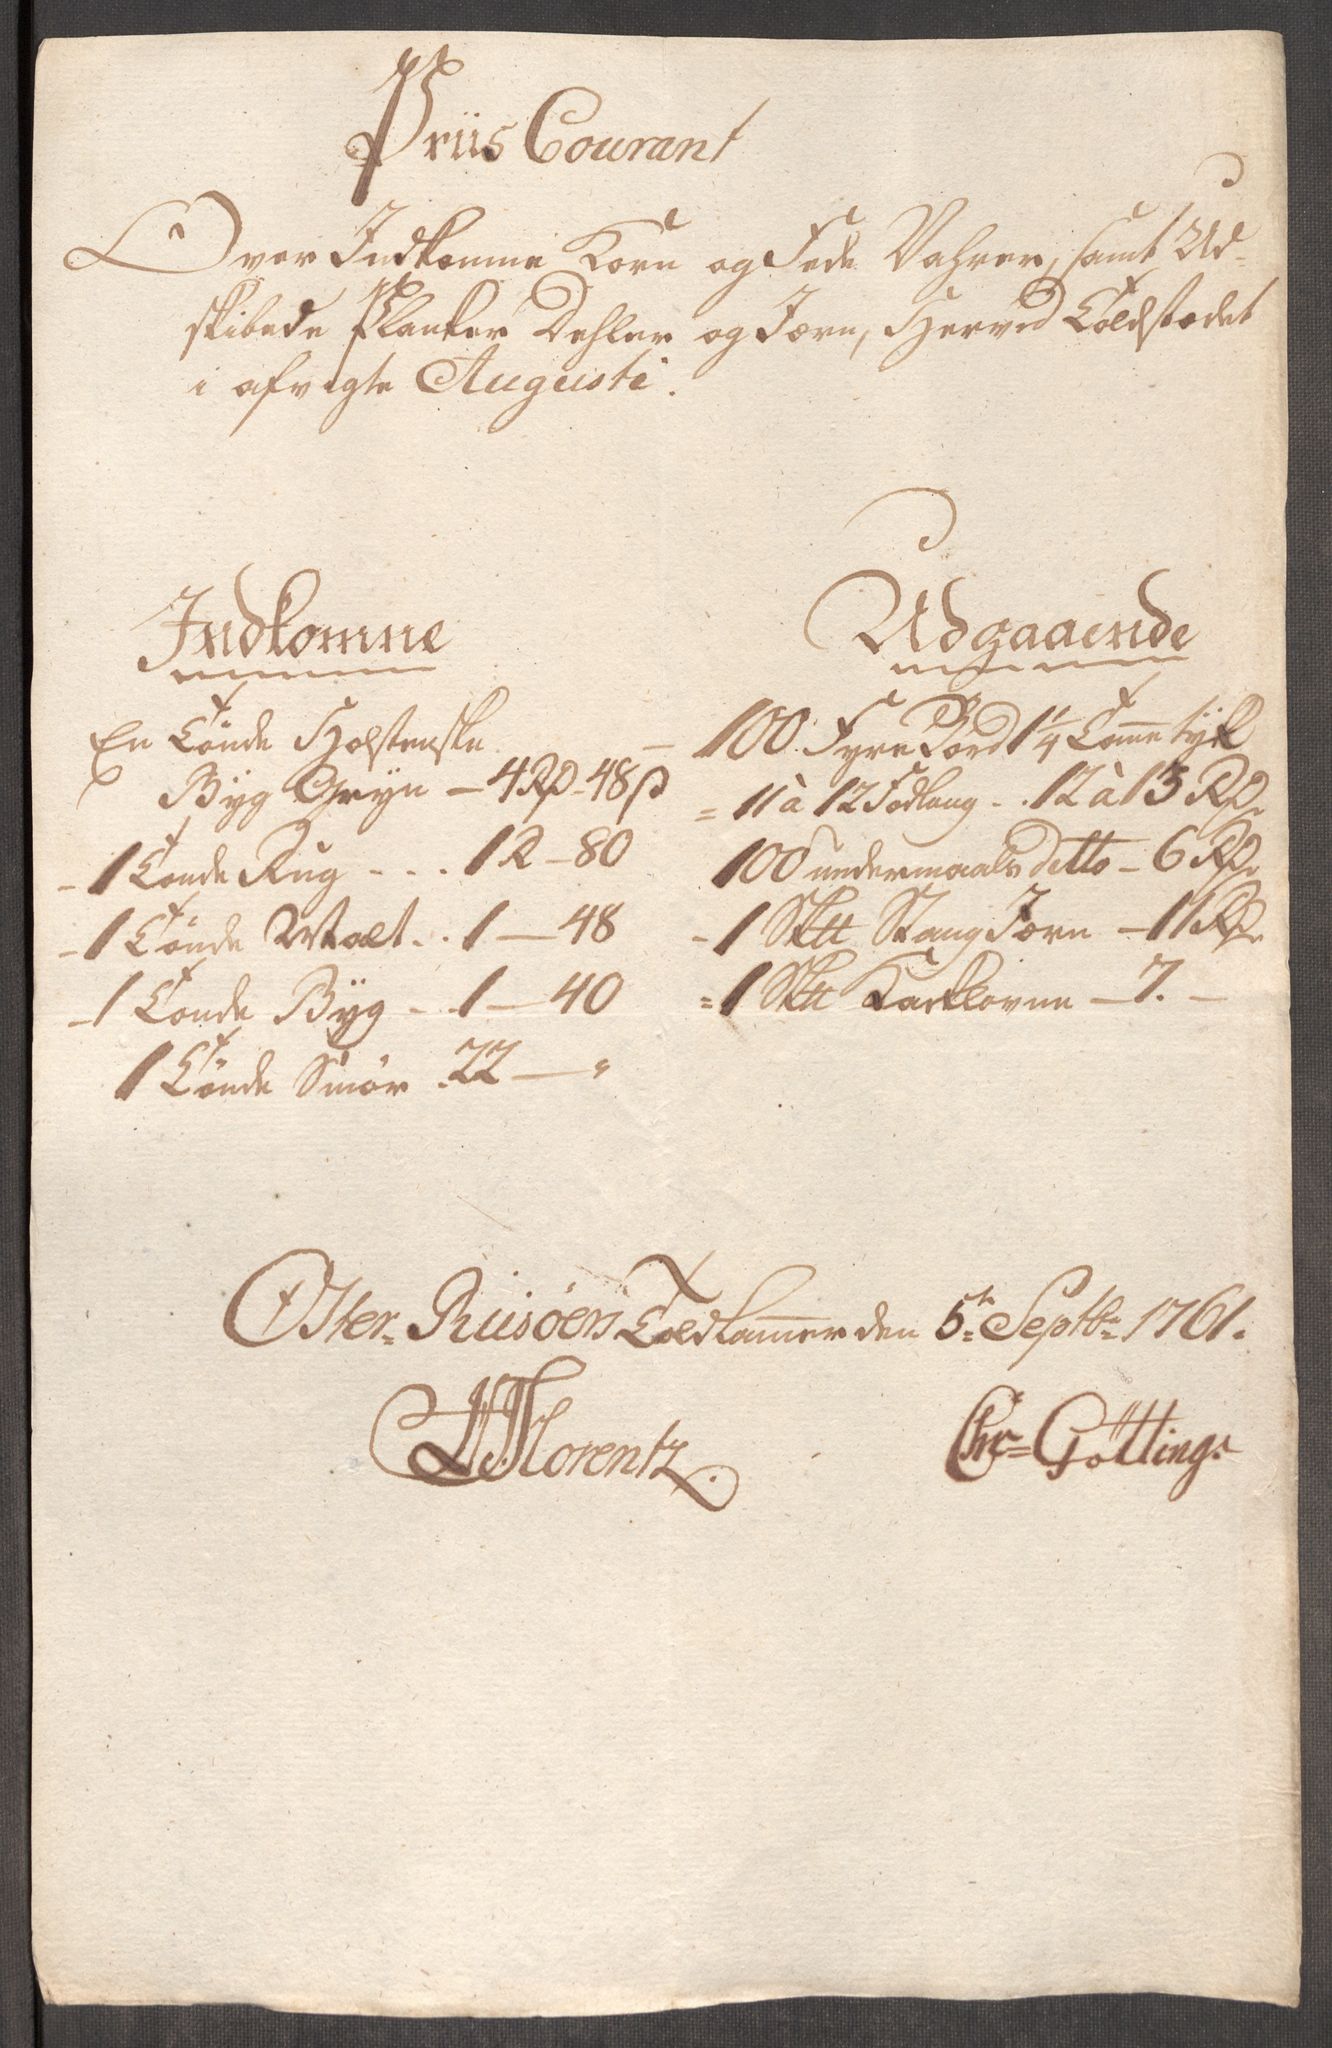 Priis Courant
Over Indkomne Korn og Fede Vahrer, samt Ud-
skibede Planker Dehler og Jærn, Herved Toldstædet
i afvigte Augusti.
Indkomne
En Tönde Holstenske
Byg Gryn — 4 Rd - 48 ß
- 1 Tönde Rug - . . . 1 R - 80
- 1 Tönde Malt . . 1 — 48
- 1 Tönde Byg - . 1 — 40
1 Tönde Smör . 22 — "
Udgaaende
— 100 Fyre Bord 1 1/4 Tomme tÿk
= 11 à 12 Fodlang - . 12 à 13 Rd
100 undermaals ditto - 6 Rd
- 1 Sktt Stang Jærn — 11 Rd
= 1 Sktt Kackkovne — 7. —
Öster-Riisöers Toldkammer den 5te Septbr 1761.
Florentz
Chr= Götting.